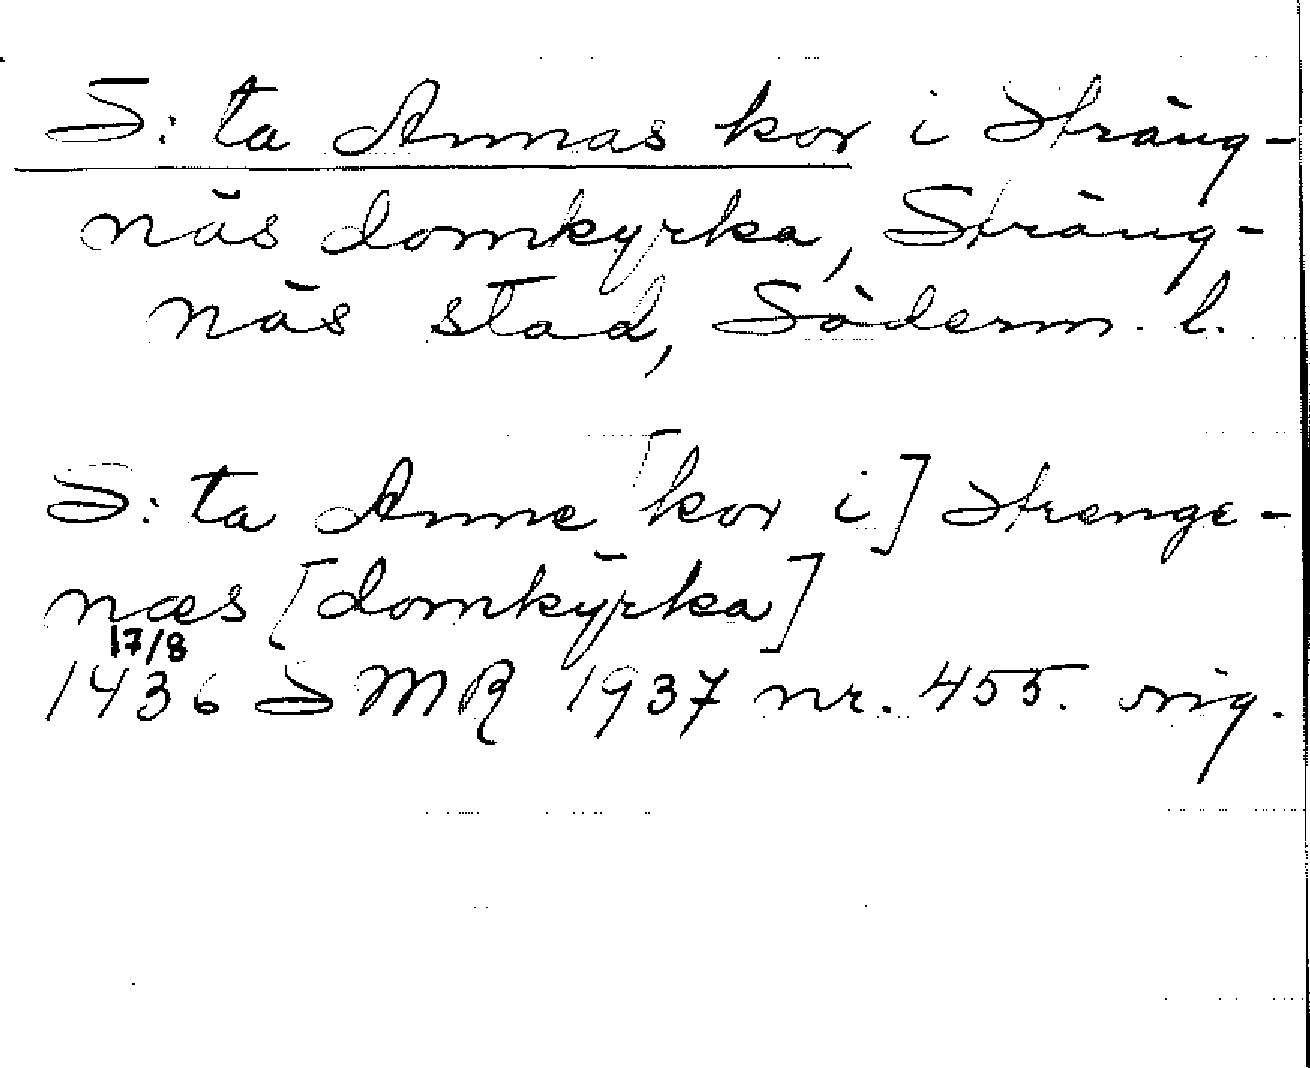 S:ta Annas kor i Sträng-
näs domkyrka, Sträng-
näs stad, Söderm. l.
S:ta Anne [kor i] Strenge-
næs [domkyrka]
17/8
1436 SMR 1937 nr. 455. orig.